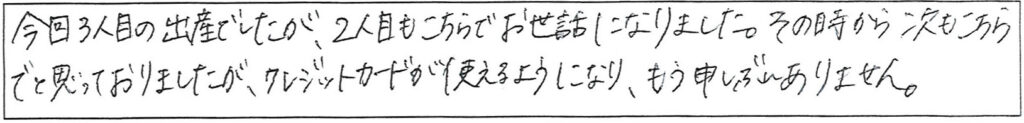 今回3人目の出産でしたが、2人目もこちらでお世話になりました。その時から次もこちら
でと思っておりましたが、クレジットカードが使えるようになり、もう申しぶんありません。